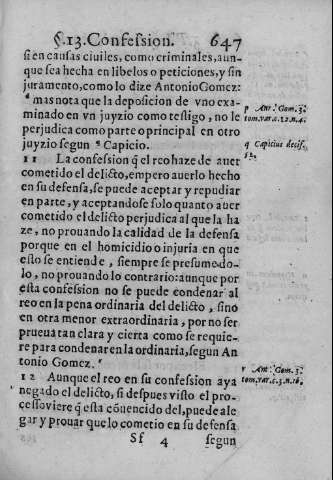 §.13.Confession. 647
si en causas ciuiles, como criminales, aun-
que sea hecha en libelos o peticiones, y sin
juramento, como lo dize Antonio Gomez:
p mas nota que la deposicion de vno exa-
minado en vn juyzio como testigo, no le
perjudica como parte principal en otro
juyzio segun q Capicio.
p Ant. Gom. 3.
tom. var. c. 12. n. 4.
q Capicius decis.
11 La confession q̃ el reo haze de auer
cometido el delicto, empero auerlo hecho
en su defensa, se puede aceptar y repudiar
en parte, y aceptandose solo quanto auer
cometido el delicto perjudica al que la ha
ze, no prouando la calidad de la defensa
porque en el homicidio o injuria en que
esto se entiende, siempre se presume do-
lo, no prouando lo contrario: aunque por
esta confession no se puede condenar al
reo en la pena ordinaria del delicto, sino
en otra menor extraordinaria, por no ser
prueua tan clara y cierta como se requie-
re para condenar en la ordinaria, segun An
tonio Gomez. r
r Ant. Gom. 3.
tom. var. c. 3. n. 26.
12 Aunque el reo en su confession aya
negado el delicto, si despues visto el pro-
cesso viere q̃ esta cõuencido del, puede ale
gar y prouar que lo cometio en su defensa
Sf 4 segun